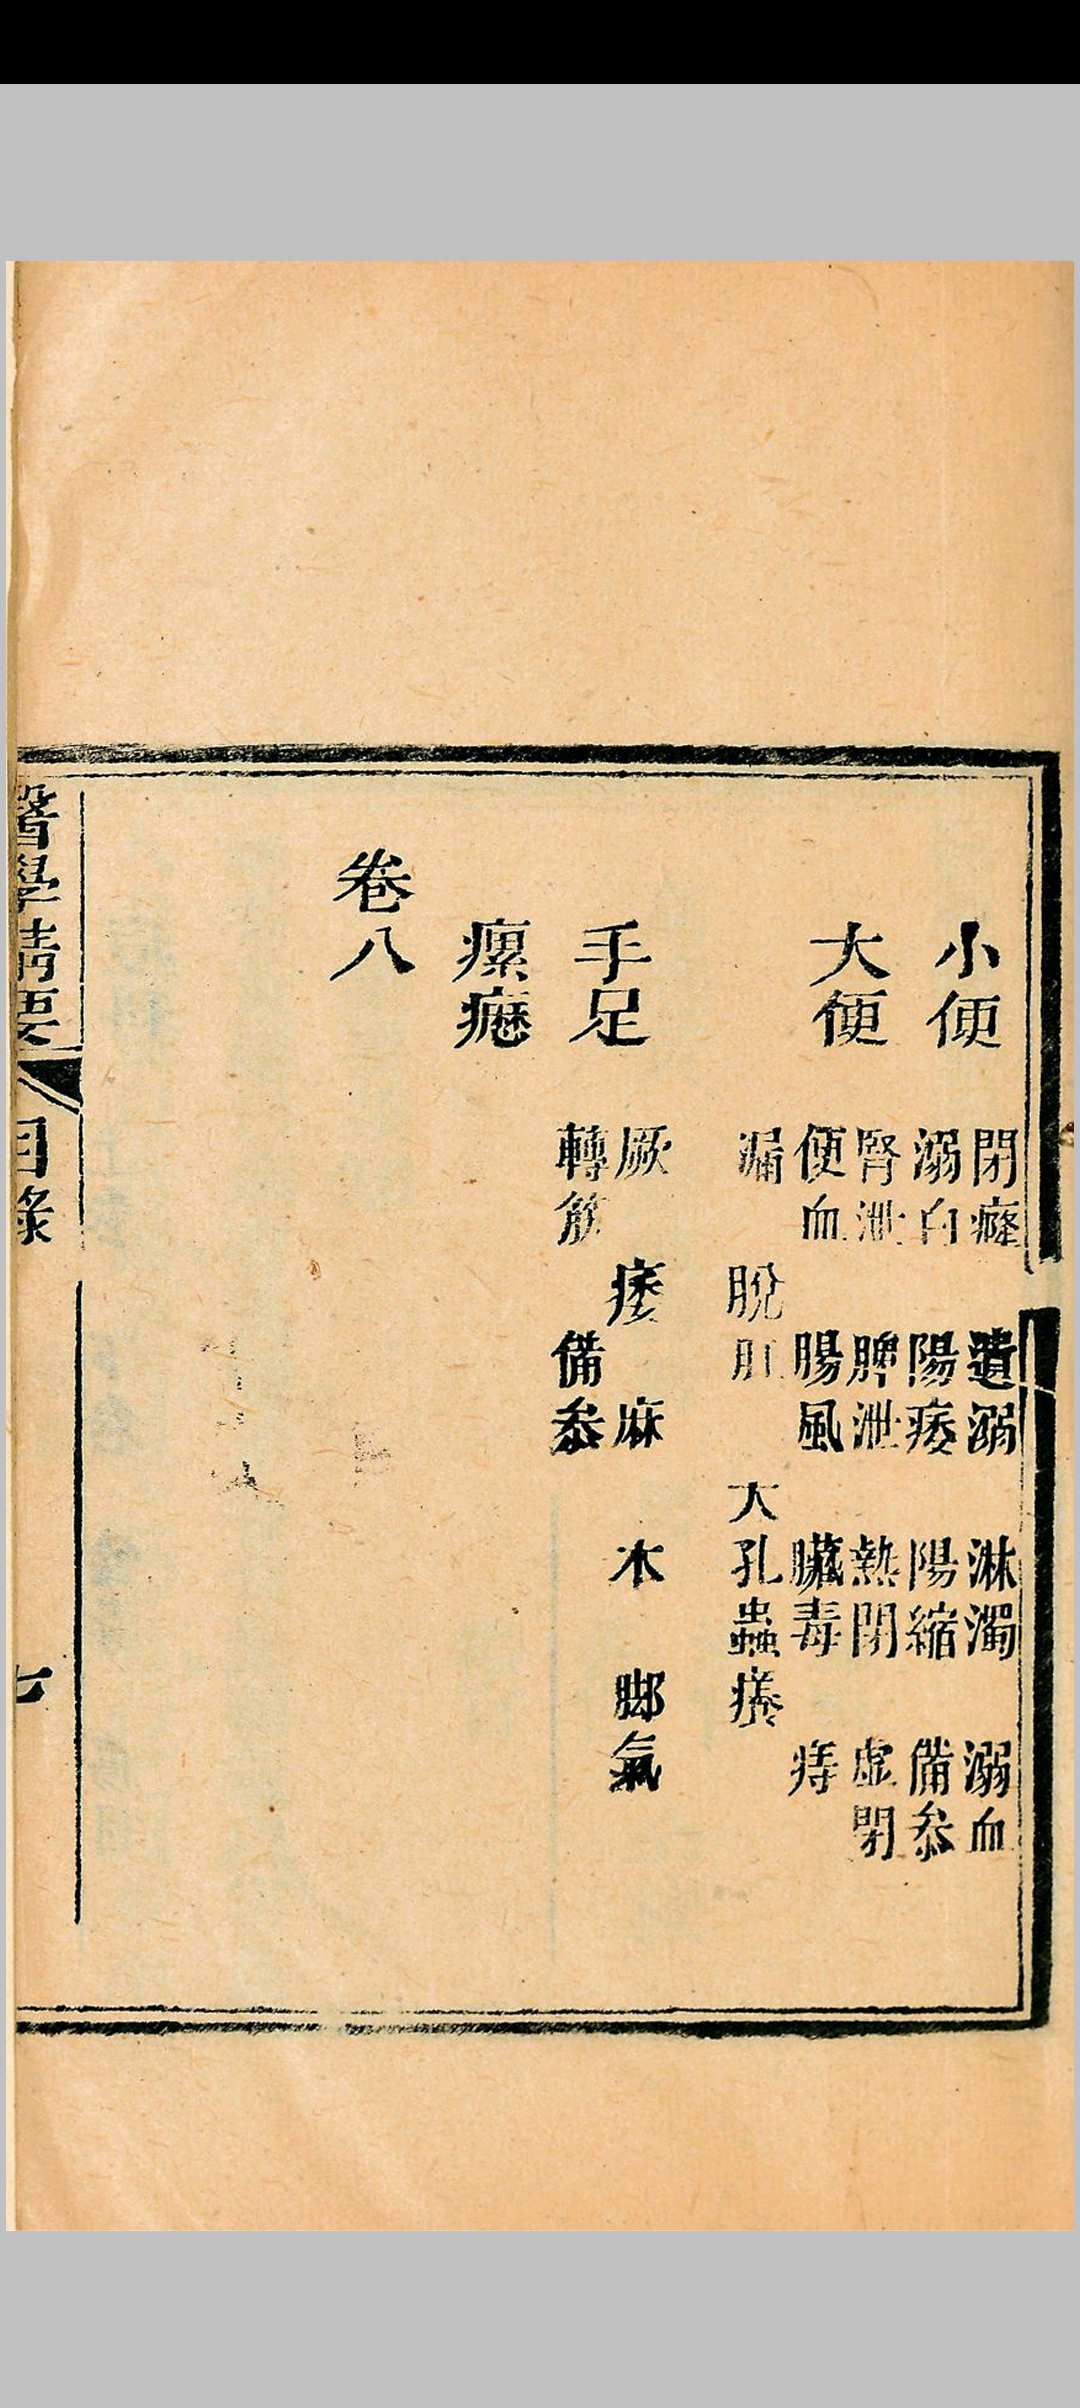 小便
閉癃 遺溺 淋濁 溺血
溺白 陽痿 陽縮 備叅
大便
腎泄 脾泄 熱閉 虛閉
便血 腸風 臟毒 痔
漏 脫肛 大孔蟲癢
手足
厥 痿 麻 木 脚氣
轉筋 備叅
瘰癧
卷八
醫學精要 目錄 七